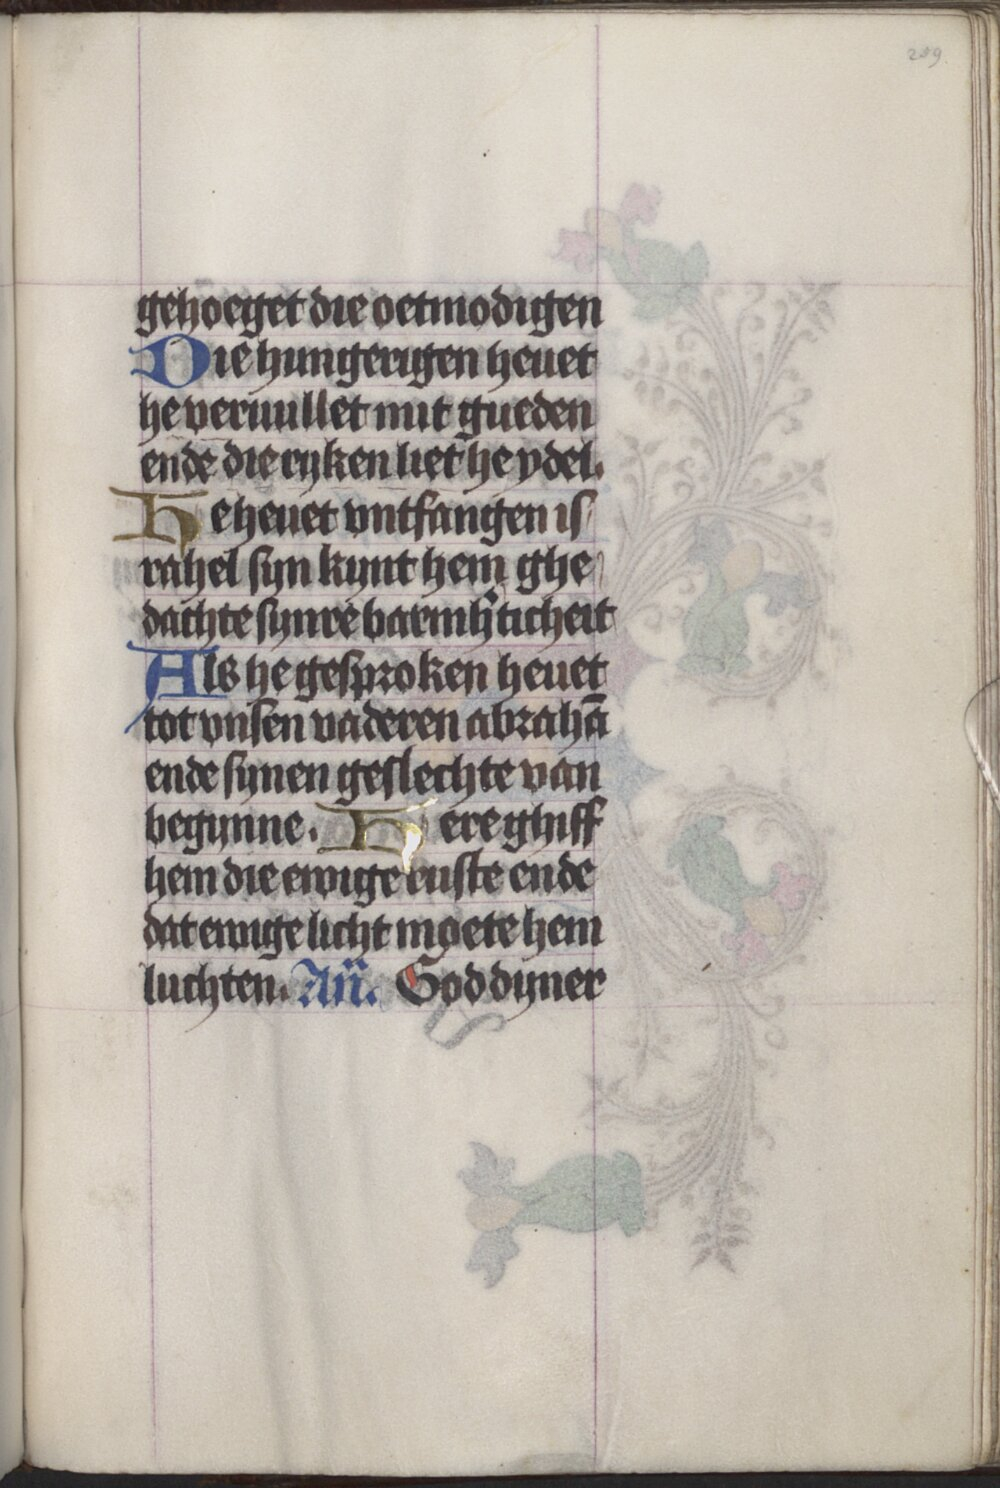 259
gehoeget die oetmodigen
Die hungerigen heuet
he veruullet mit gueden
ende die ryken liet he ydel.
He heuet vntfangen is/
rahel syn kynt hem ghe/
dachte synre barmh'ticheit
Als he gesproken heuet
tot vnsen vaderen abrahā
ende synen geslechte van
begynne. Here ghiff
hem die ewige ruste ende
dat ewige licht moete hem
luchten. An̄. God dyner